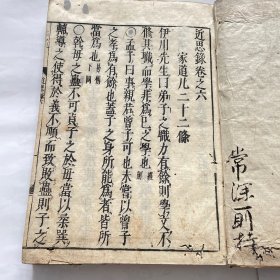 近思錄卷之六
家道凡二十二條
伊川先生曰弟子之職力有餘則學文不
修其職而學非爲己之學也
孟子曰事親若曾子可也未嘗以曾子
之孝爲有餘也蓋子之身所能爲者皆所
當爲也易傳下同
幹母之蠱不可貞子之於母當以柔巽
輔導之使得於義不順而致敗蠱則子之
常